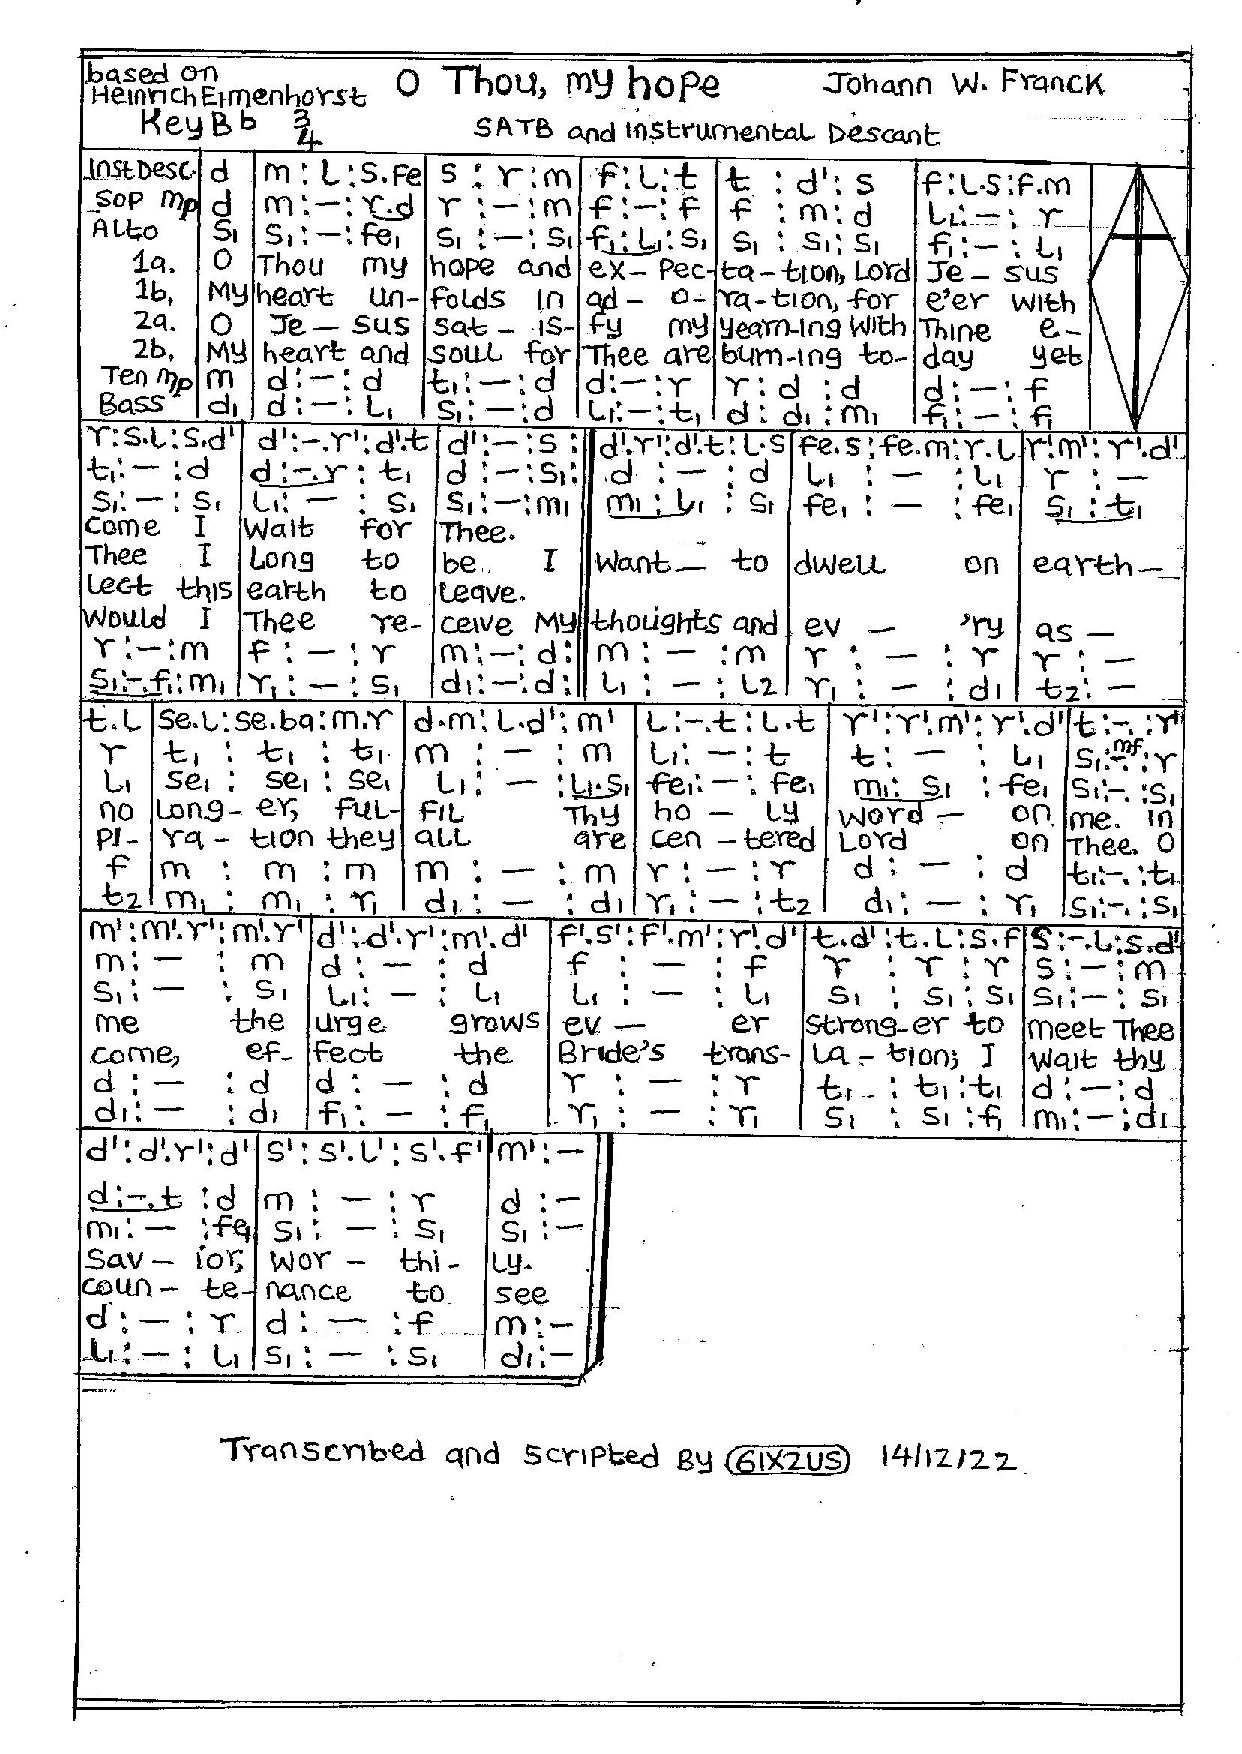 based on
Heinrich Elmenhorst
O Thou, my hope
Johann W. Franck
Key B b 3/4
SATB and instrumental Descant
Inst Desc. d | m : l : s.fe | s : r : m | f : l : t | t : d' : s | f : l.s : f.m
Sop mp d | m : — : r.d | r : — : m | f : — : f | f : m : d | l₁ : — : r
Alto s₁ | s₁ : — : fe₁ | s₁ : — : s₁ | f₁ : l₁ : s₁ | s₁ : s₁ : s₁ | f₁ : — : l₁
1a. O | Thou my | hope and | ex- pec- | ta-tion, Lord | Je- sus
1b, My | heart un- | folds in | ad- o- | ra-tion, for | e'er with
2a. O | Je- sus | sat- is- | fy my | yearn-ing with | Thine e-
2b, My | heart and | soul for | Thee are | burn-ing to- | day yet
Ten mp m | d : — : d | t₁ : — : d | d : — : r | r : d : d | d : — : f
Bass d₁ | d : — : l₁ | s₁ : — : d | l₁ : — : t₁ | d : d₁ : m₁ | f₁ : — : f₁
r : s.l : s.d' | d' : -.r' : d'.t | d' : — : s : || d'.r' : d'.t : l.s | fe.s : fe.m : r.l | r'.m' : r'.d'
t₁ : — : d | d : -.r : t₁ | d : — : s₁ : || d : — : d | l₁ : — : l₁ | r : —
s₁ : — : s₁ | l₁ : — : s₁ | s₁ : — : m₁ || m₁ : l₁ : s₁ | fe₁ : — : fe₁ | s₁ : t₁
come I | wait for | Thee.
Thee I | long to | be. I || want— to | dwell on | earth—
lect this | earth to | leave.
Would I | Thee re- | ceive My || thoughts and | ev — 'ry | as —
r : — : m | f : — : r | m : — : d : || m : — : m | r : — : r | r : —
s₁ : -.f₁ : m₁ | r₁ : — : s₁ | d₁ : — : d : || l₁ : — : l₂ | r₁ : — : d₁ | t₂ : —
t.l | se.l : se.ba : m.r | d.m : l.d' : m' | l : -.t : l.t | r' : r'.m' : r'.d' | t : -. : r'
r | t₁ : t₁ : t₁ | m : — : m | l₁ : — : t | t : — : l₁ | s₁ : -. : mf r
l₁ | se₁ : se₁ : se₁ | l₁ : — : l₁.s₁ | fe₁ : — : fe₁ | m₁ : s₁ : fe₁ | s₁ : -. : s₁
no | long- er, ful- | fil Thy | ho — ly | word — on | me. in
pi- | ra- tion they | all are | cen-tered | Lord on | Thee. O
f | m : m : m | m : — : m | r : — : r | d : — : d | t₁ : -. : t₁
t₂ | m₁ : m₁ : r₁ | d₁ : — : d₁ | r₁ : — : t₂ | d₁ : — : r₁ | s₁ : -. : s₁
m' : m'.r' : m'.r' | d' : d'.r' : m'.d' | f'.s' : f'.m' : r'.d' | t.d' : t.l : s.f | s : -.l : s.d'
m : — : m | d : — : d | f : — : f | r : r : r | s : — : m
s₁ : — : s₁ | l₁ : — : l₁ | l₁ : — : l₁ | s₁ : s₁ : s₁ | s₁ : — : s₁
me the | urge grows | ev — er | strong-er to | meet Thee
come, ef- | fect the | Bride's trans- | la-tion; I | wait thy
d : — : d | d : — : d | r : — : r | t₁ : t₁ : t₁ | d : — : d
d₁ : — : d₁ | f₁ : — : f₁ | r₁ : — : r₁ | s₁ : s₁ : f₁ | m₁ : — : d₁
d' : d'.r' : d' | s' : s'.l' : s'.f' | m' : —
d : -.t : d | m : — : r | d : —
m₁ : — : fe₁ | s₁ : — : s₁ | s₁ : —
Sav- ior, | wor- thi- | ly.
coun- te- | nance to | see
d : — : r | d : — : f | m : —
l₁ : — : l₁ | s₁ : — : s₁ | d₁ : —
Transcribed and scripted By 6IX2US 14/12/22